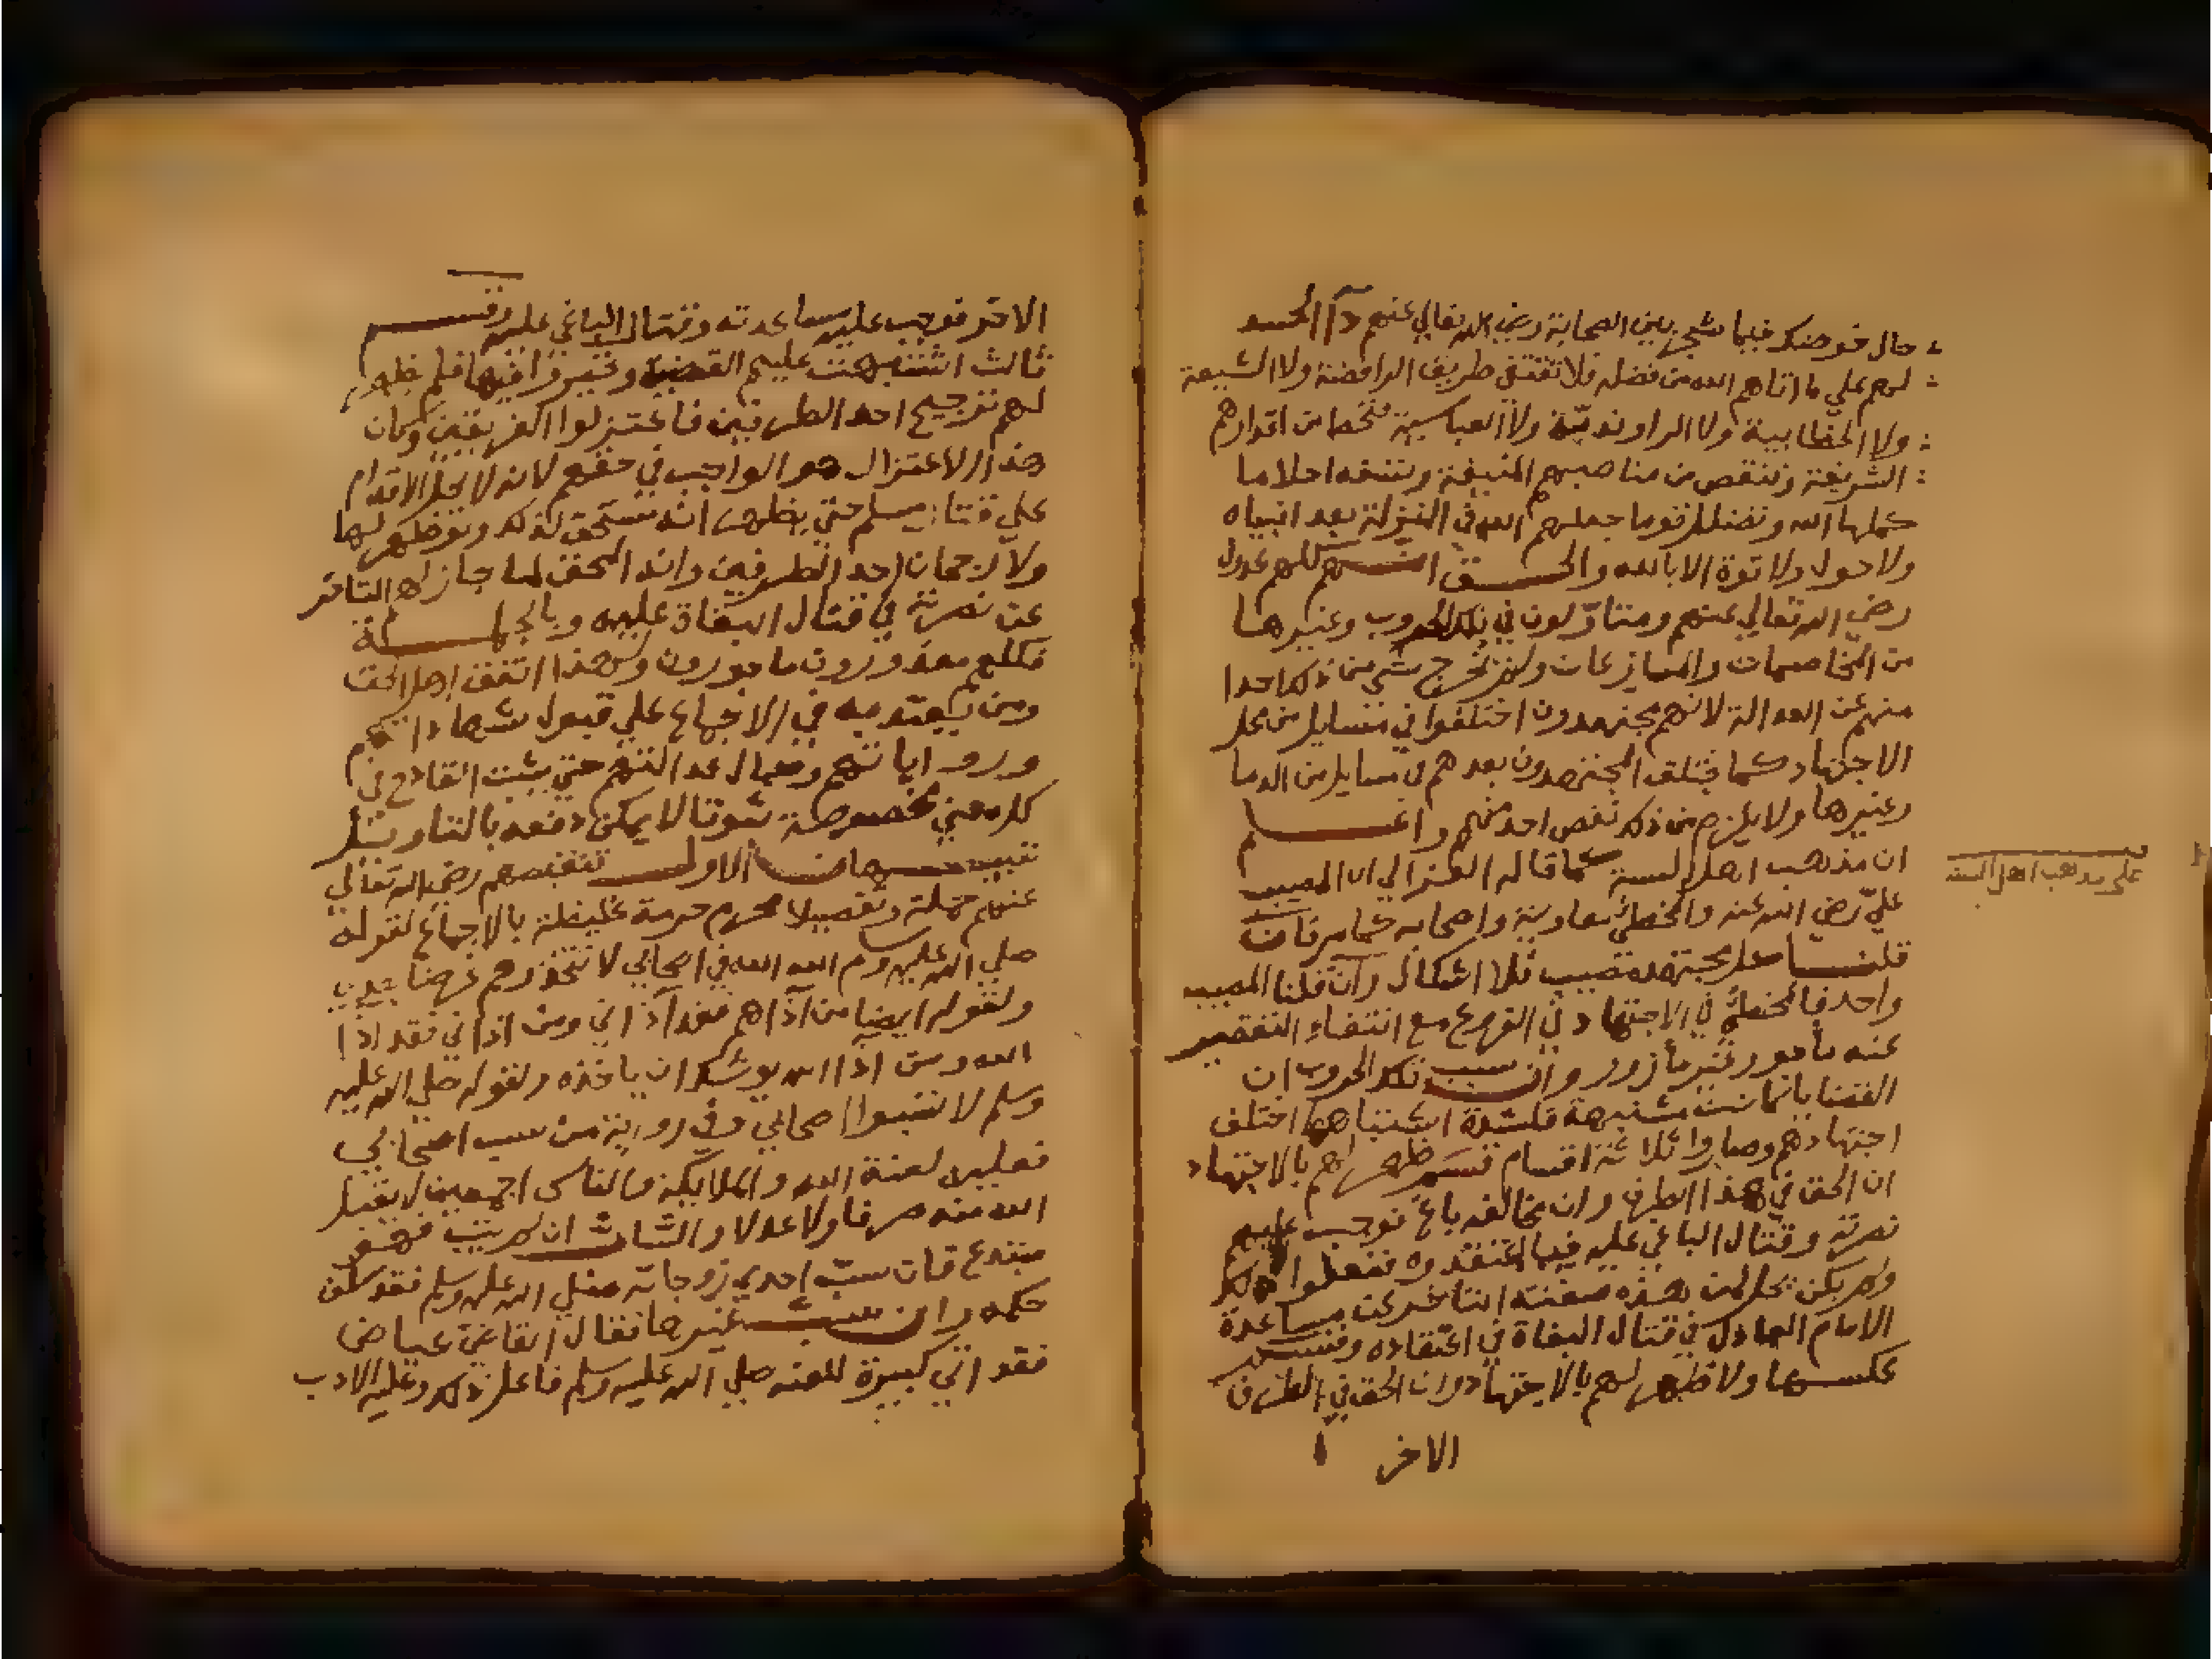 حال خوضك فيما شجر بين الصحابة رضي الله تعالي عنهم داآ الحسد
لهم علي ما اتاهم الله من فضله فلا تقتفي طريق الرافضة ولا الشيعة
ولا الخطابية ولا الراوندية ولا العباسية فتحط من اقدارهم
الشريفة وتنقص من مناصبهم المنيفة وتنتقد احلاما
كملها الله وتضلل قوما جعلهم الله في المنزلة بعد انبياه
ولا حول ولا قوة الا بالله والحق انهم كلهم عدول
رضي الله تعالي عنهم ومتاولون في تلك الحروب وغيرها
من المخاصمات والمنازعات ولم يخرج شي من ذلك احدا
منهم عن العدالة لانهم مجتهدون اختلفوا في مسايل من محل
الاجتهاد كما يختلف المجتهدون بعدهم في مسايل من الدما
وغيرها ولا يلزم من ذلك نقص احد منهم واعلم
ان مذهب اهل السنة كما قاله الغزالي ان المصيب
علي رضي الله عنه والمخطي معاوية واصحابه كما مر فان
قلنا كل مجتهد مصيب فلا اشكال وان قلنا المصيب
واحد فالمخطي في الاجتهاد في الفروع مع انتفاء التقصير
عنه مأجور غير مأزور وان سبب تلك الحروب ان
القضايا كانت مشتبهة فلشدة اشتباهها اختلف
اجتهادهم وصاروا ثلاثة اقسام قسم ظهر لهم بالاجتهاد
ان الحق في هذا الطرف وان مخالفه باغ فوجب عليهم
نصرته وقتال الباغي عليه فيما اعتقدوه ففعلوا ذلك
ولم يكن يحل لمن هذه صفته التاخر عن مساعدة
الامام العادل في قتال البغاة في اعتقاده وقسم
عكسها ولا ظهر لهم بالاجتهاد وان الحق في الطرف
الاخر
علي مذهب اهل السنة
الاخر فوجب عليه مساعدته وقتال الباغي عليه وقسم
ثالث اشتبهت عليهم القضية وتحيروا فيها فلم يظهر
لهم ترجيح احد الطرفين فاعتزلوا الفريقين وكان
هذا الاعتزال هو الواجب في حقهم لانه لا يحل الاقدام
علي قتال مسلم حتي يظهر انه مستحق لذلك ولو ظهر لها
ولا رجحان احد الطرفين وانه المحق لما جاز لهم التاخر
عن نصرته في قتال البغاة عليه وبالجملة
فكلهم معذورون ماجورون ولهذا اتفق اهل الحق
ومن يعتد به في الاجماع علي قبول شهاداتهم
ورواياتهم وكمال عدالتهم حتي يثبت القادح في
كل معين بخصوصه ثبوتا لا يمكن دفعه بالتاويل
تنبيهات الاول تنقيصهم رضي الله تعالي
عنهم جملة وتفصيلا محرم حرمة غليظة بالاجماع لقوله
صلي الله عليه وسلم الله الله في اصحابي لا تتخذوهم غرضا بعدي
ولقوله ايضا من آذاهم فقد آذاني ومن اذاني فقد اذا
الله ومن اذا الله يوشك ان ياخذه ولقوله صلي الله عليه
وسلم لا تسبوا اصحابي وفي رواية من سب اصحابي
فعليه لعنة الله والملايكة والناس اجمعين لا يقبل
الله منه صرفا ولا عدلا والثالث ان لم يتب فهو
مبتدع فان سب احدي زوجاته صلي الله عليه وسلم فقد سلف
حكمه وان سب غيرها فقال القاضي عياض
فقد اتي كبيرة للعنه صلي الله عليه وسلم فاعل ذلك وعليه الادب